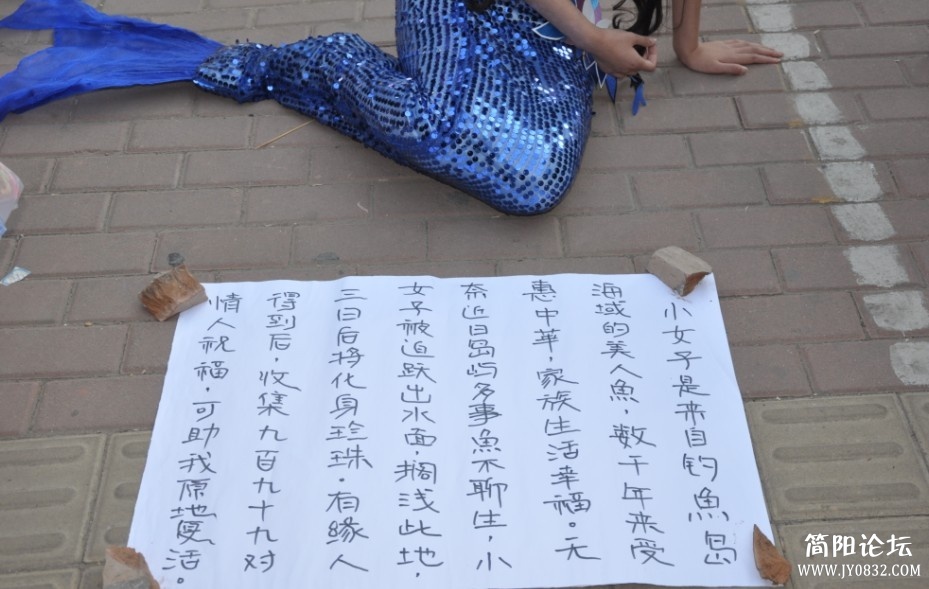 小女子是来自钓魚岛
海域的美人魚，数千年来受
惠中华，家族生活幸福。无
奈近日岛屿多事魚不聊生，小
女子被迫跃出水面，搁浅此地，
三日后将化身珍珠。有缘人
得到后，收集九百九十九对
情人祝福，可助我原地复活。
简阳论坛
WWW.JY0832.COM